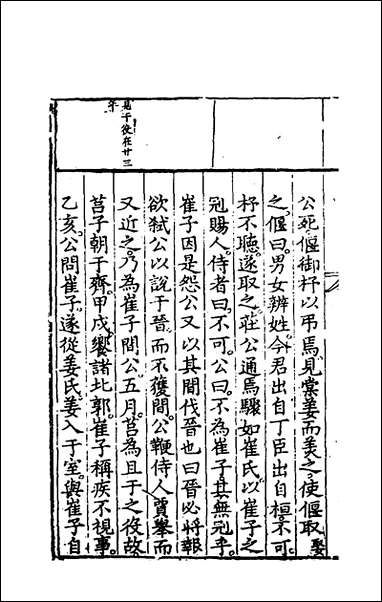 公死偃御杼以弔焉見棠姜而美之使偃取娶
之偃曰男女辨姓今君出自丁臣出自桓不可
杼不聽遂取之莊公通焉驟如崔氏以崔子之
冠賜人侍者曰不可公曰不為崔子其無冠乎
崔子因是怨公又以其間伐晉也曰晉必將報
欲弒公以說于晉而不獲間公鞭侍人賈舉而
又近之乃為崔子間公五月莒為且于之役故
莒子朝于齊甲戌饗諸北郭崔子稱疾不視事
乙亥公問崔子遂從姜氏姜入于室與崔子自
且于役在廿三
年